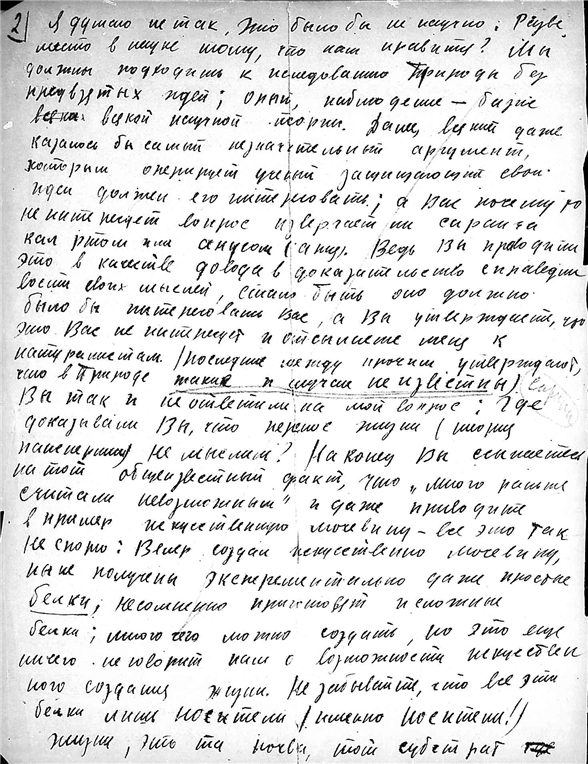 2) Я думаю не так, это было бы не научно: Разве
место в науке тому, что нам нравится? Мы
должны подходить к иследованию Природы без
предвзятых идей; опыт, наблюдение — базис
всякой научной теории. Далее, всякий даже
казалось бы самый незначительный аргумент,
которым оперирует ученый защищающий свои
идеи должен его интересовать; а Вас почему то
не интересует вопрос извергает ли саранча
кал ртом или анусом (anus). Ведь Вы приводили
это в качестве довода в доказательство справедли
вости своих мыслей, стало быть оно должно
было бы интересовать Вас, а Вы утверждаете, что
это Вас не интересует и отсылаете меня к
натуралистам (последние между прочим утверждают,
что в Природе такие случаи неизвестны)
Вы так и не ответили на мой вопрос: Где
доказывали Вы, что перенос жизни (теория
панспермии) не мыслим? Наконец Вы ссылаетесь
на тот общеизвестный факт, что „много раньше
считали невозможным" и даже приводите
в пример искусственную мочевину — все это так
не спорю: Велер создал искусственно мочевину,
ныне получены эксперементально даже простые
белки, несомненно приготовят и сложные
белки; много чего можно создать, но это еще
ничего не говорит нам о возможности искуствен
ного создания жизни. Не забывайте, что все эти
белки лишь носители (именно носители!)
жизни, это та почва, тот субстрат где